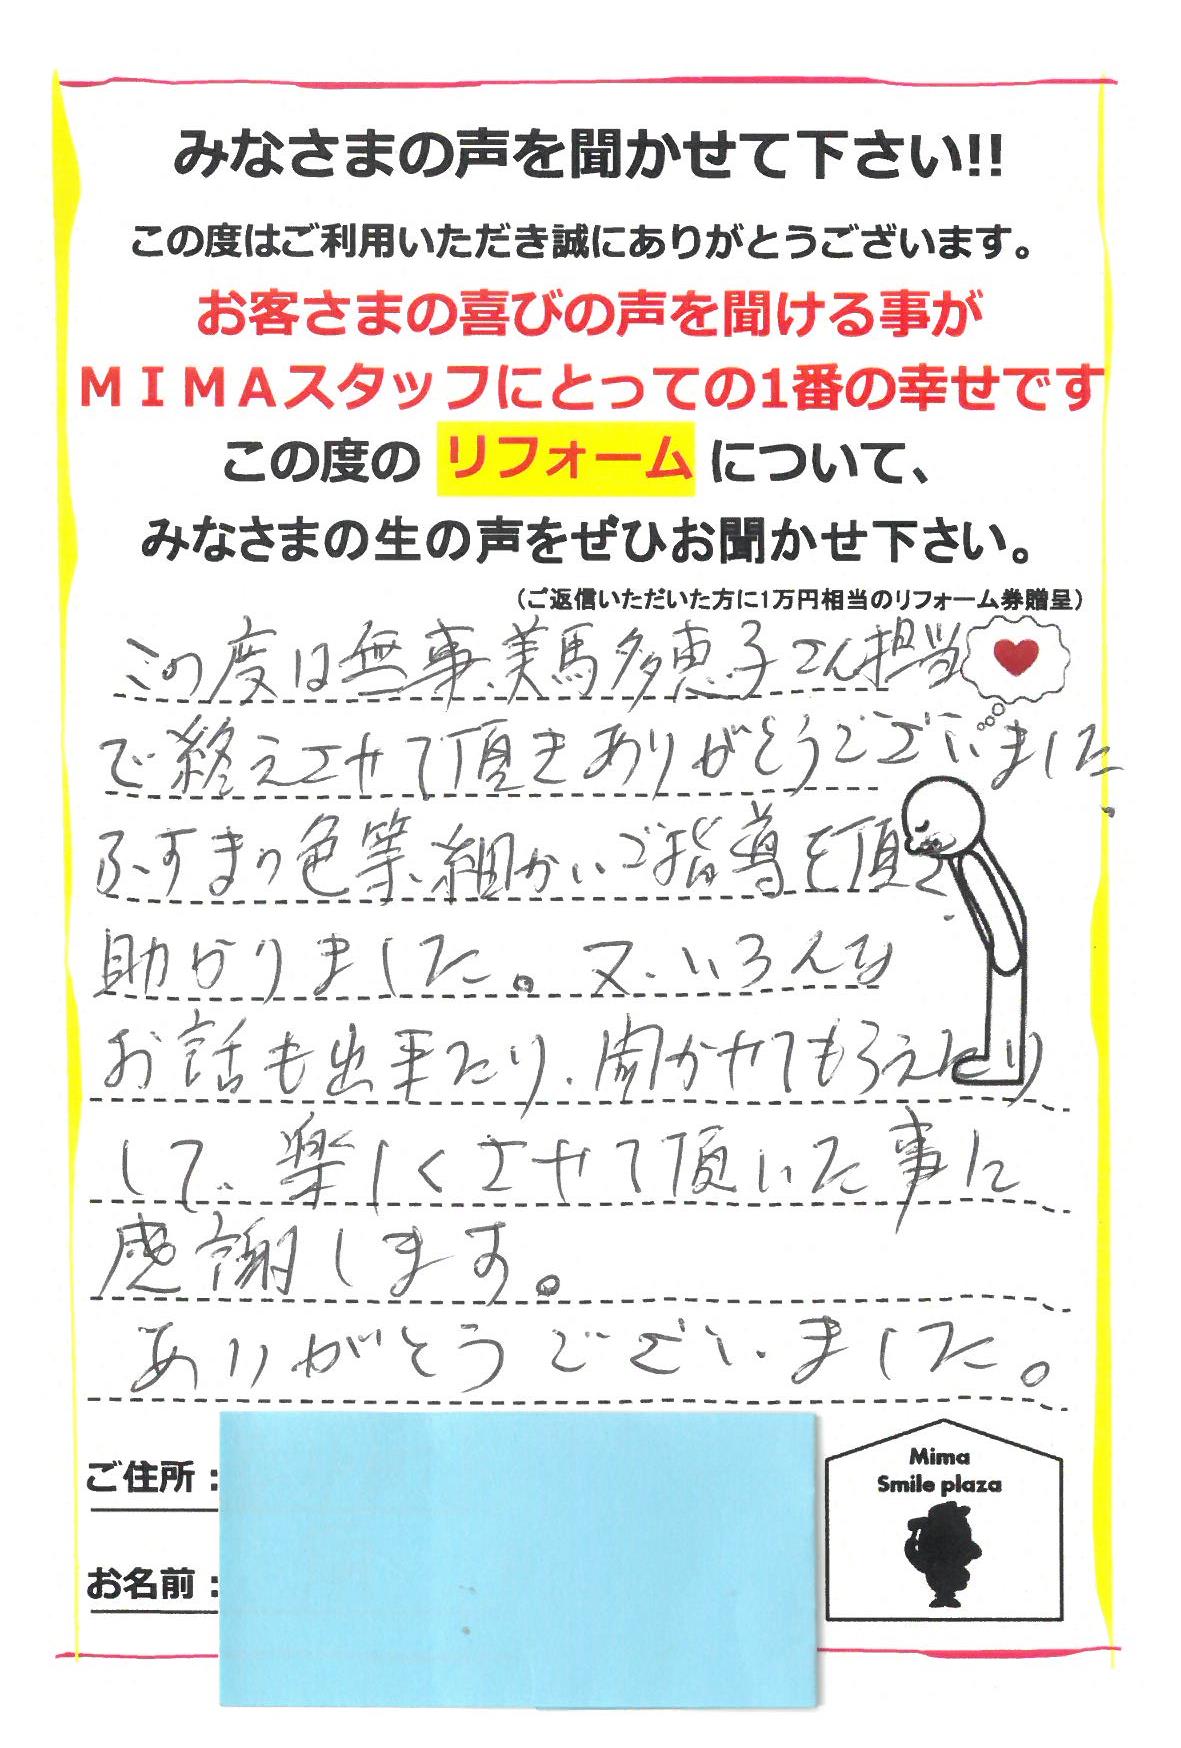 みなさまの声を聞かせて下さい!!
この度はご利用いただき誠にありがとうございます。
お客さまの喜びの声を聞ける事が
ＭＩＭＡスタッフにとっての1番の幸せです
この度の リフォーム について、
みなさまの生の声をぜひお聞かせ下さい。
（ご返信いただいた方に1万円相当のリフォーム券贈呈）
この度は無事、美馬多恵子さん担当
で終えさせて頂きありがとうございました。
ふすまの色等、細かいご指導を頂き
助かりました。又、いろんな
お話も出来たり、聞かせてもらえたり
して、楽しくさせて頂いた事に
感謝します。
ありがとうございました。
ご住所：
お名前：
Mima
Smile plaza